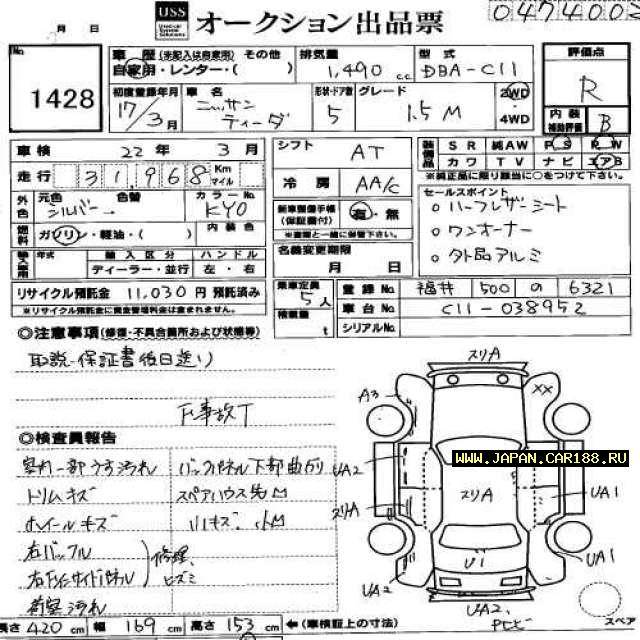 USS オークション出品票 0474002
月 日
No 1428
車歴 (未記入は自家用) その他
自家用・レンター・( )
排気量 1,490 c.c
型式 DBA-C11
評価点 R
内装補助評価 B
初度登録年月 17/3月
車名 ニッサン ティーダ
形状・ドア数 5
グレード 1.5M
2WD
4WD
車検 22年 3月
シフト AT
装備品 SR 純AW PS PW
カワ TV ナビ エアB
※純正品に限り○をつけて下さい
走行 31,968 Km マイル
冷房 AA/C
セールスポイント
○ハーフレザーシート
○ワンオーナー
○外品アルミ
外色 元色 シルバー 色替 →
カラーNo. KY0
内装色
新車整備手帳(保証書付) 有・無
※車両と一緒に保管下さい。
燃料 ガソリン・軽油・( )
名義変更期限
月 日
年式 輸入区分 ハンドル
ディーラー・並行 左・右
リサイクル預託金 11,030円 預託済み
※リサイクル預託金に資金管理料金は含まれません。
乗車定員 5人
積載量 t
登録No 福井 500 の 6321
車台No. C11-038952
シリアルNo.
◎注意事項 (修復・不具合箇所および状態等)
取説・保証書後日送り
事故
◎検査員報告
室内一部うす汚れ
バックパネル下部曲がり
トリムキズ
スペアハウス先凹
ホイールキズ
小キズ. 小凹
右バッフル
修理、ヒズミ
荷室汚れ
スリA
A3
XX
UA2
スリA
UA1
スリA
U1
UA1
UA2
UA2.
スペア
WWW.JAPAN.CAR188.RU
長さ 420 cm 幅 169 cm 高さ 153 cm ←(車検証上の寸法)